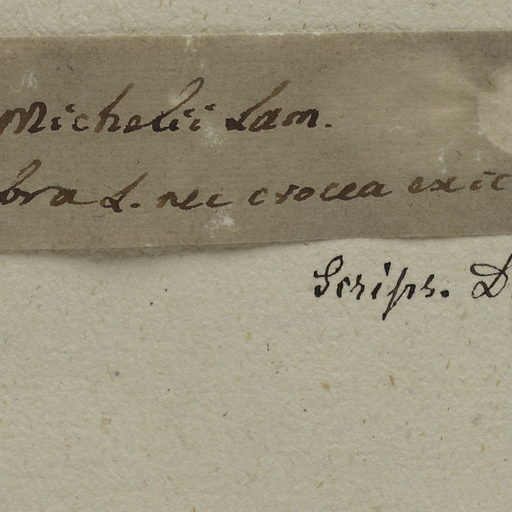 Michelii Lam.
bra L. nec crocea exic
Scrips. D